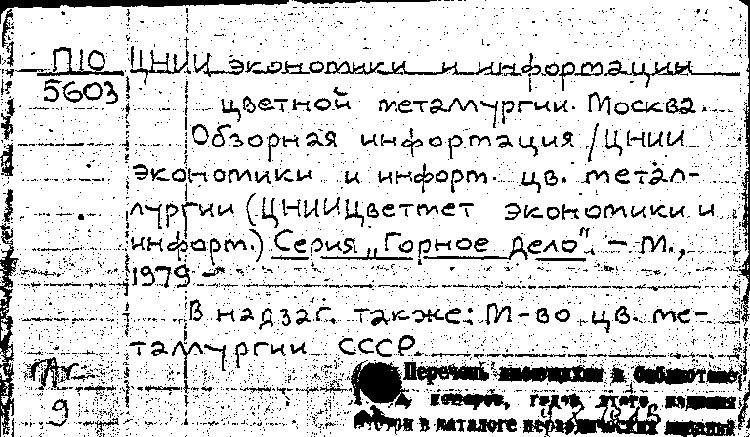 П10 ЦНИИ экономики и информации
5603 цветной металлургии. Москва.
Обзорная информация / ЦНИИ
экономики и информ. цв. метал-
лургии (ЦНИИЦветмет экономики и
информ.) Серия „Горное дело". – М.,
1979 –
В надзаг. также: М-во цв. ме-
таллургии СССР.
Перечень имеющихся в библиотеке
номеров, годов этого издания
в каталоге периодических изданий
9